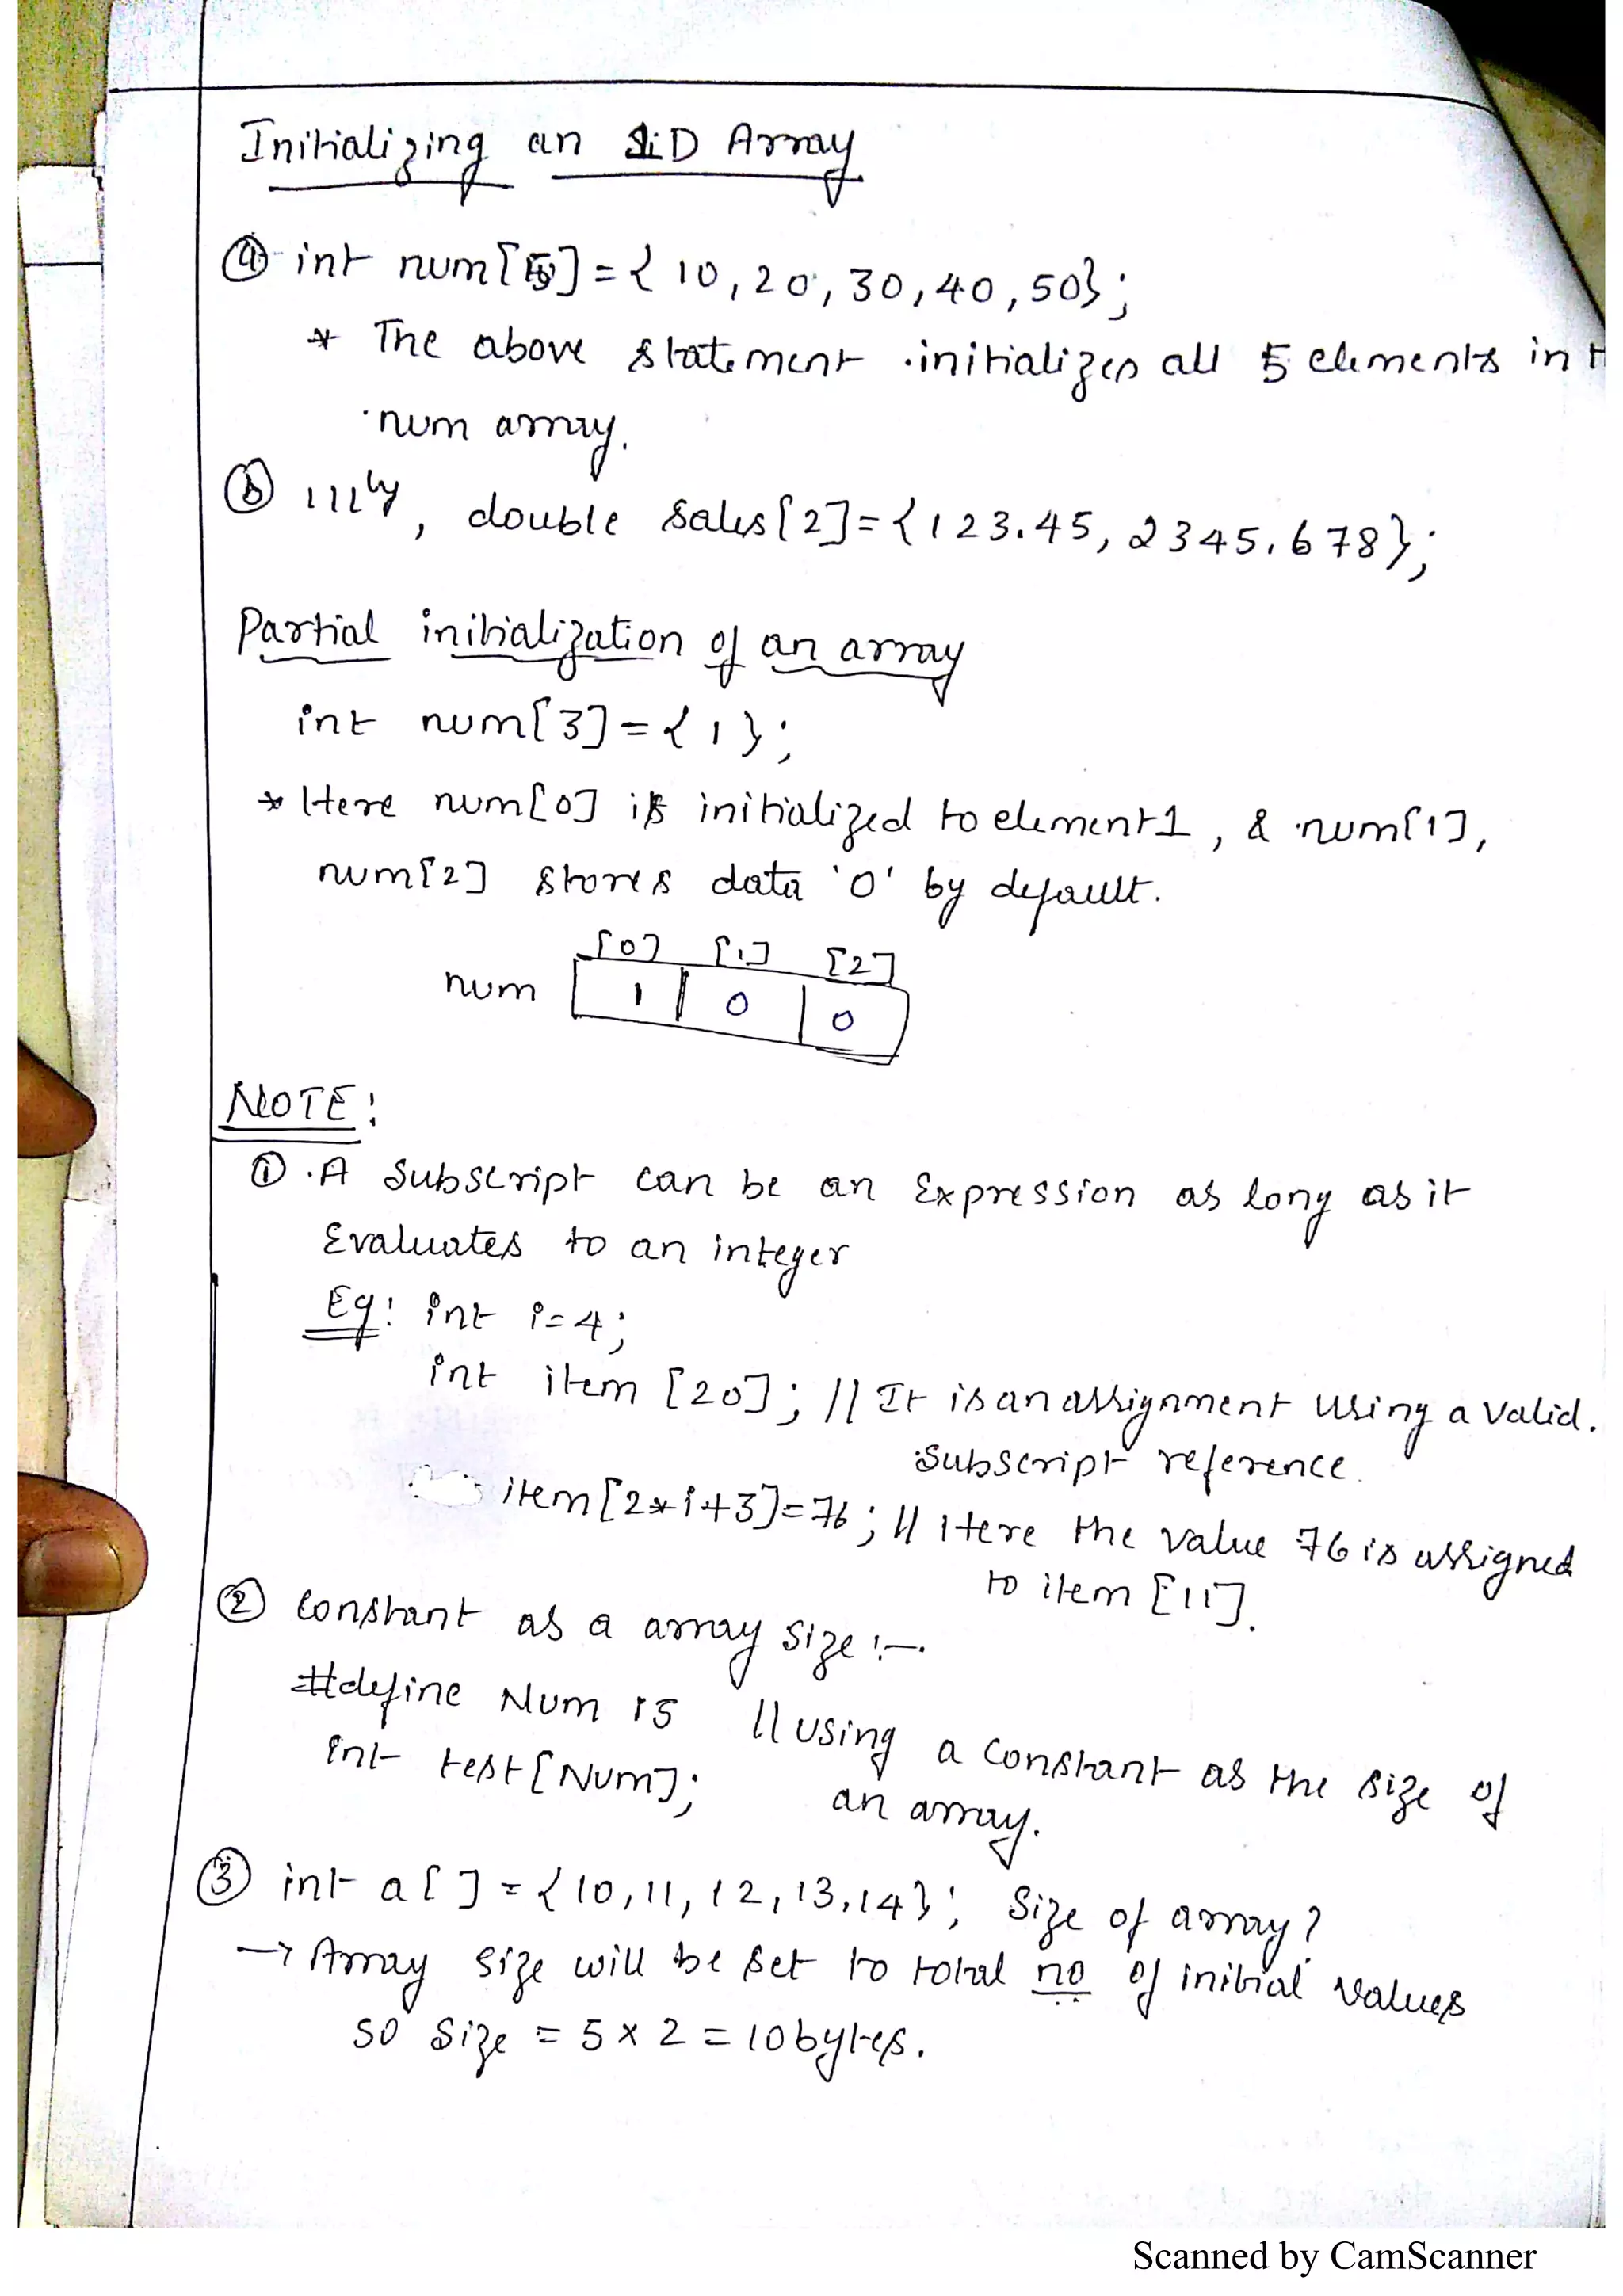 Initializing an 1-D Array
ⓐ int num[5]={ 10,20,30,40,50};
* The above statement initializes all 5 elements in
num array.
ⓑ |||ly, double sales[2]={123.45, 2345.678};
Partial initialization of an array
int num[3]={1};
* Here num[0] is initialized to element 1, & num[1],
num[2] stores data '0' by default.
[0] [1] [2]
num 1 0 0
NOTE:
① A subscript can be an Expression as long as it
Evaluates to an integer
Eg: int i=4;
int item [20]; // It is an assignment using a valid.
subscript reference.
item[2*i+3]=76; // Here the value 76 is assigned
to item [11].
② Constant as a array size:-
#define Num 15 // using a constant as the size of
int test[Num]; an array.
③ int a[ ] = {10,11,12,13,14}; Size of array?
→ Array size will be set to total no of initial values
so size = 5 x 2 = 10bytes.
Scanned by CamScanner